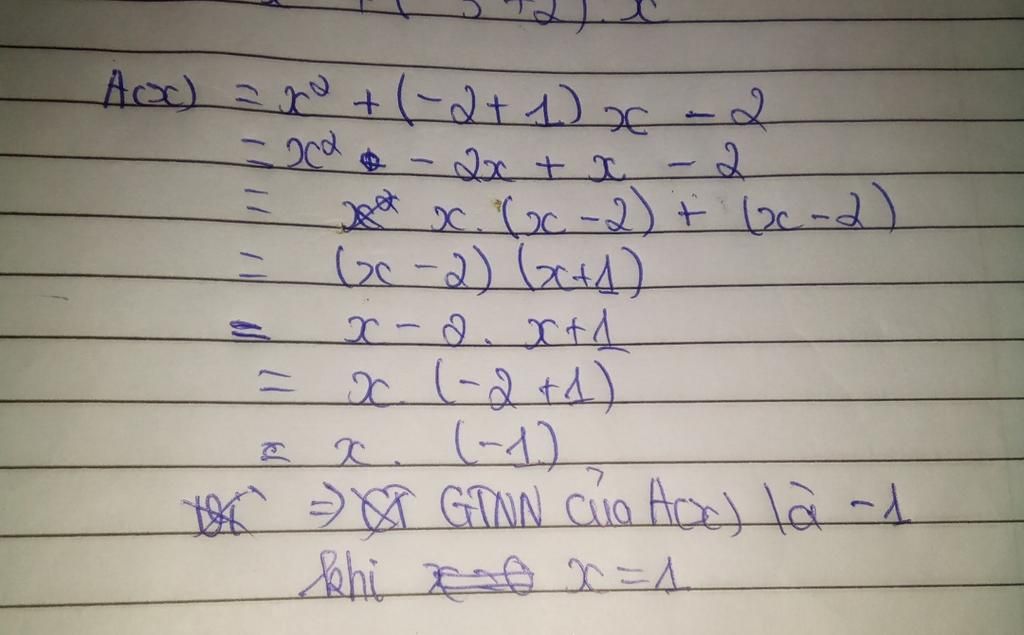 + ( 3 + 2 ) . x
A(x) = x² + (-2 + 1) x - 2
= x² - 2x + x - 2
= x . (x - 2) + (x - 2)
= (x - 2) (x + 1)
= x - 2 . x + 1
= x . (-2 + 1)
= x . (-1)
=> GTNN của A(x) là -1
khi x = 1